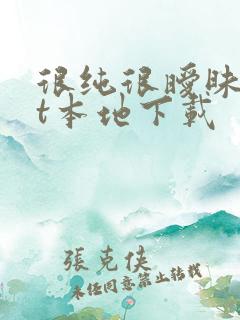 很纯很暧昧
t本地下载
張克俠
未经同意禁止转载